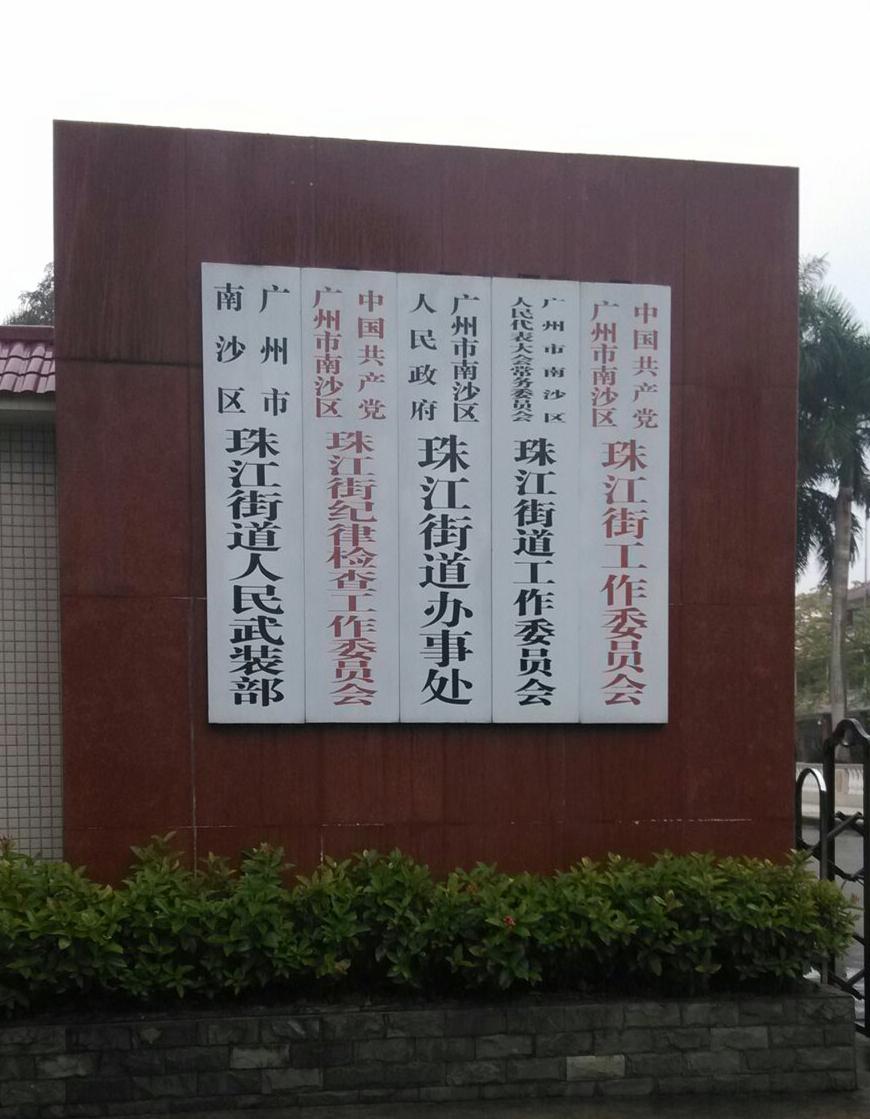 中国共产党
广州市南沙区
珠江街工作委员会
广州市南沙区
人民代表大会常务委员会
珠江街道工作委员会
广州市南沙区
人民政府
珠江街道办事处
中国共产党
广州市南沙区
珠江街纪律检查工作委员会
广州市
南沙区
珠江街道人民武装部